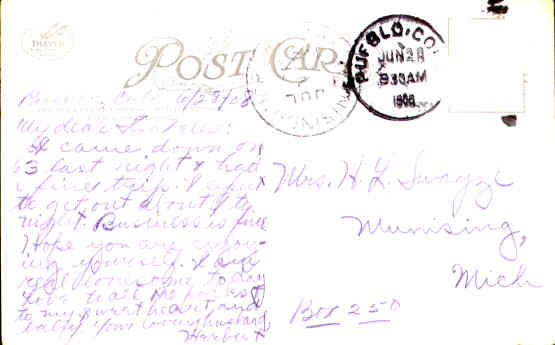 THAYER
POST CARD
PUEBLO, COLO.
JUN 28
9 30 AM
1908
MUNISING
JUL
Colo. 6/28/08
My dear
I came down on
63 last night & had
a fine trip. I expect
to get out about 9 to
night. Business is fine
Hope you are enjoy-
ing yourself. I am
real lonesome today
Love to all the folks &
to my sweetheart and
baby Your loving husband
Herbert
Mrs. H. L. Swayze
Munising,
Mich
Box 250